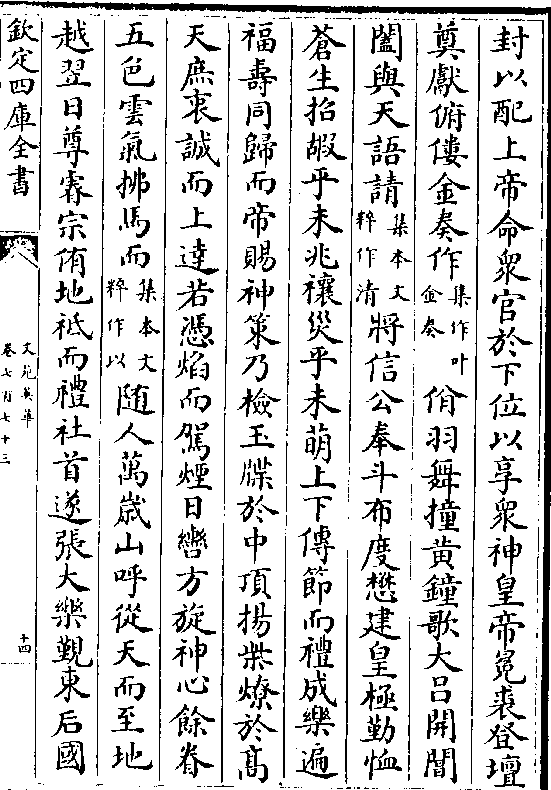 封以配上帝命衆官於下位以享衆神皇帝冕裘登壇
奠獻俯僂金奏作集作叶金奏佾羽舞撞黄鐘歌大吕開閶
闔與天語請集本文粹作清將信公奉斗布度懋建皇極勤恤
蒼生招嘏乎未兆禳災乎未萌上下傳節而禮成樂遍
福壽同歸而帝賜神策乃檢玉牒於中頂揚柴燎於髙
天庶衷誠而上達若憑焰而駕煙日轡方旋神心餘眷
五色雲氣拂馬而集本文粹作以随人萬嵗山呼從天而至地
越翌日尊睿宗侑地祗而禮社首遂張大樂覲東后國
欽定四庫全書
文苑英華
卷七百七十三
十四